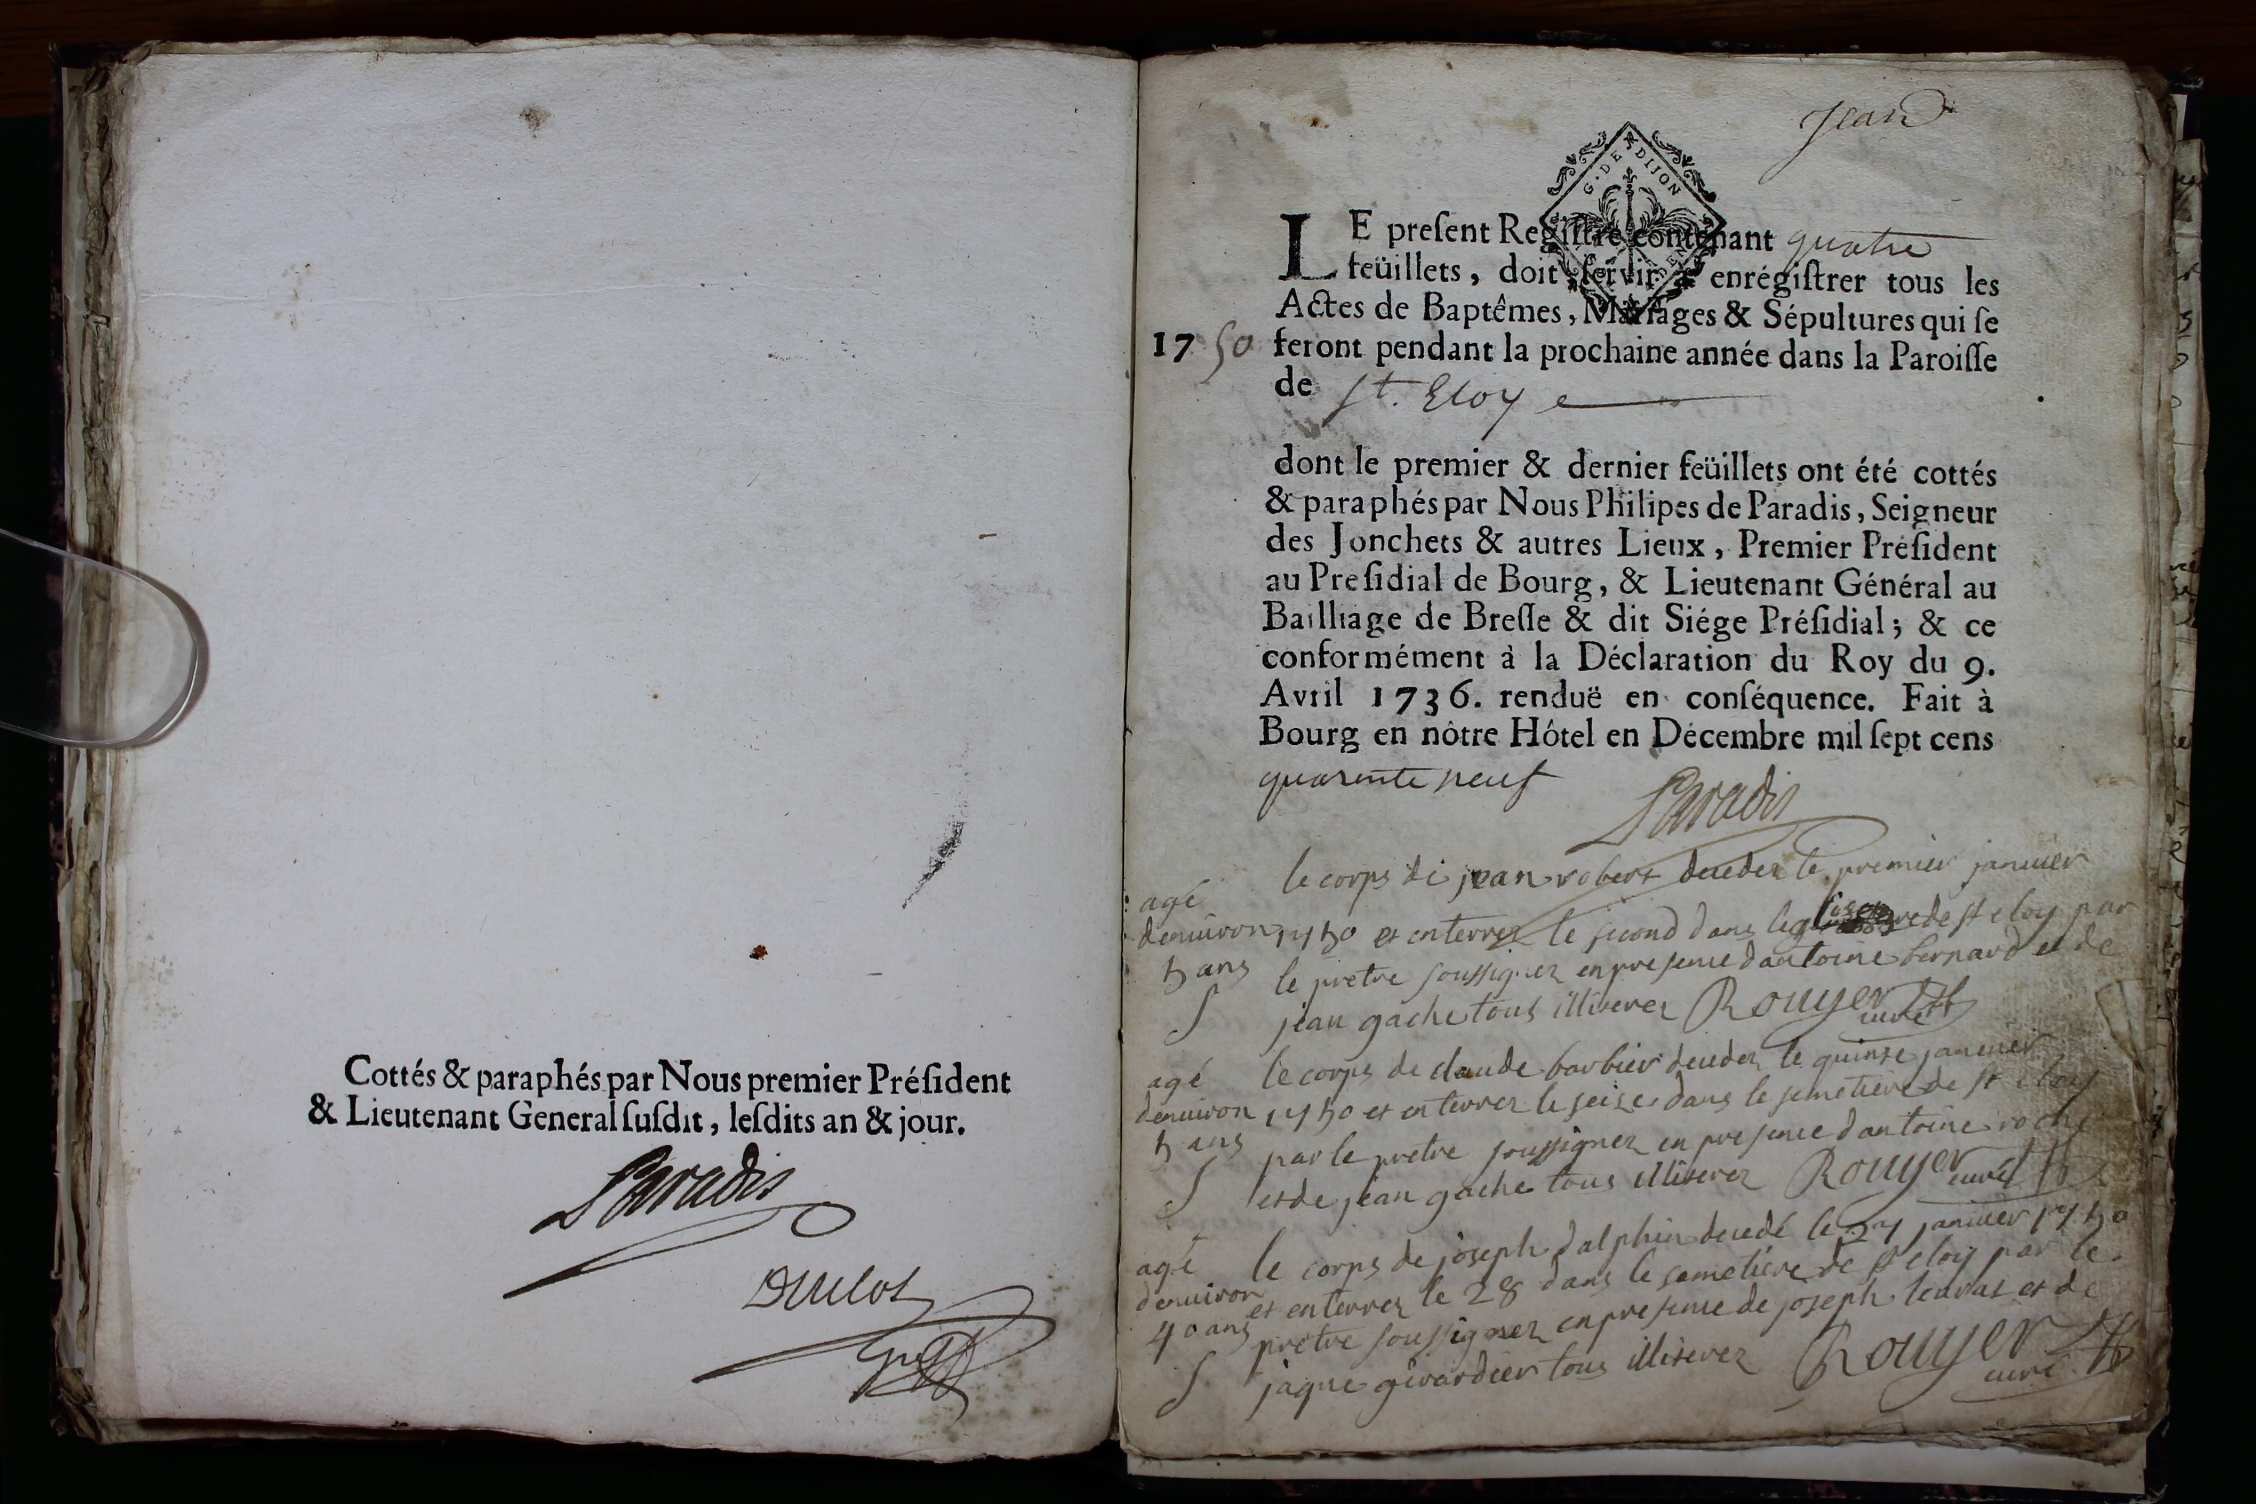 Cottés & paraphés par Nous premier Préſident
& Lieutenant General ſuſdit, leſdits an & jour.
Paradis
Jean
G. DE DIJON
LE preſent Regiſtre contenant quatre
feüillets, doit ſervir à enrégiſtrer tous les
Actes de Baptêmes, Mariages & Sépultures qui ſe
1750 feront pendant la prochaine année dans la Paroiſſe
de St. Eloy
dont le premier & dernier feüillets ont été cottés
& paraphés par Nous Philipes de Paradis, Seigneur
des Jonchets & autres Lieux, Premier Préſident
au Preſidial de Bourg, & Lieutenant Général au
Bailliage de Breſſe & dit Siége Préſidial; & ce
conformément à la Déclaration du Roy du 9.
Avril 1736. renduë en conſéquence. Fait à
Bourg en nôtre Hôtel en Décembre mil ſept cens
quarente neuf
Paradis
le corps de jean robert decedez le premier janvier
agé
denviron 1750 et enterrez le second dans de st eloy par
5 ans le pretre soussignez en presence dantoine bernard et de
S jean gache tous illiterez Rouyer curé
agé le corps de claude barbier decedez le quinze janvier
denviron 1750 et enterrez le seize dans le semetiere de st eloy
5 ans par le pretre soussignez en presence dantoine roche
S et de jean gache tous illiterez Rouyer curé
agé le corps de joseph dalphin decedé le 27 janvier 1750
denviron et enterrez le 28 dans le semetiere de st eloy par le
40 ans pretre soussignez en presence de joseph et de
S jaque girardier tous illiterez Rouyer curé